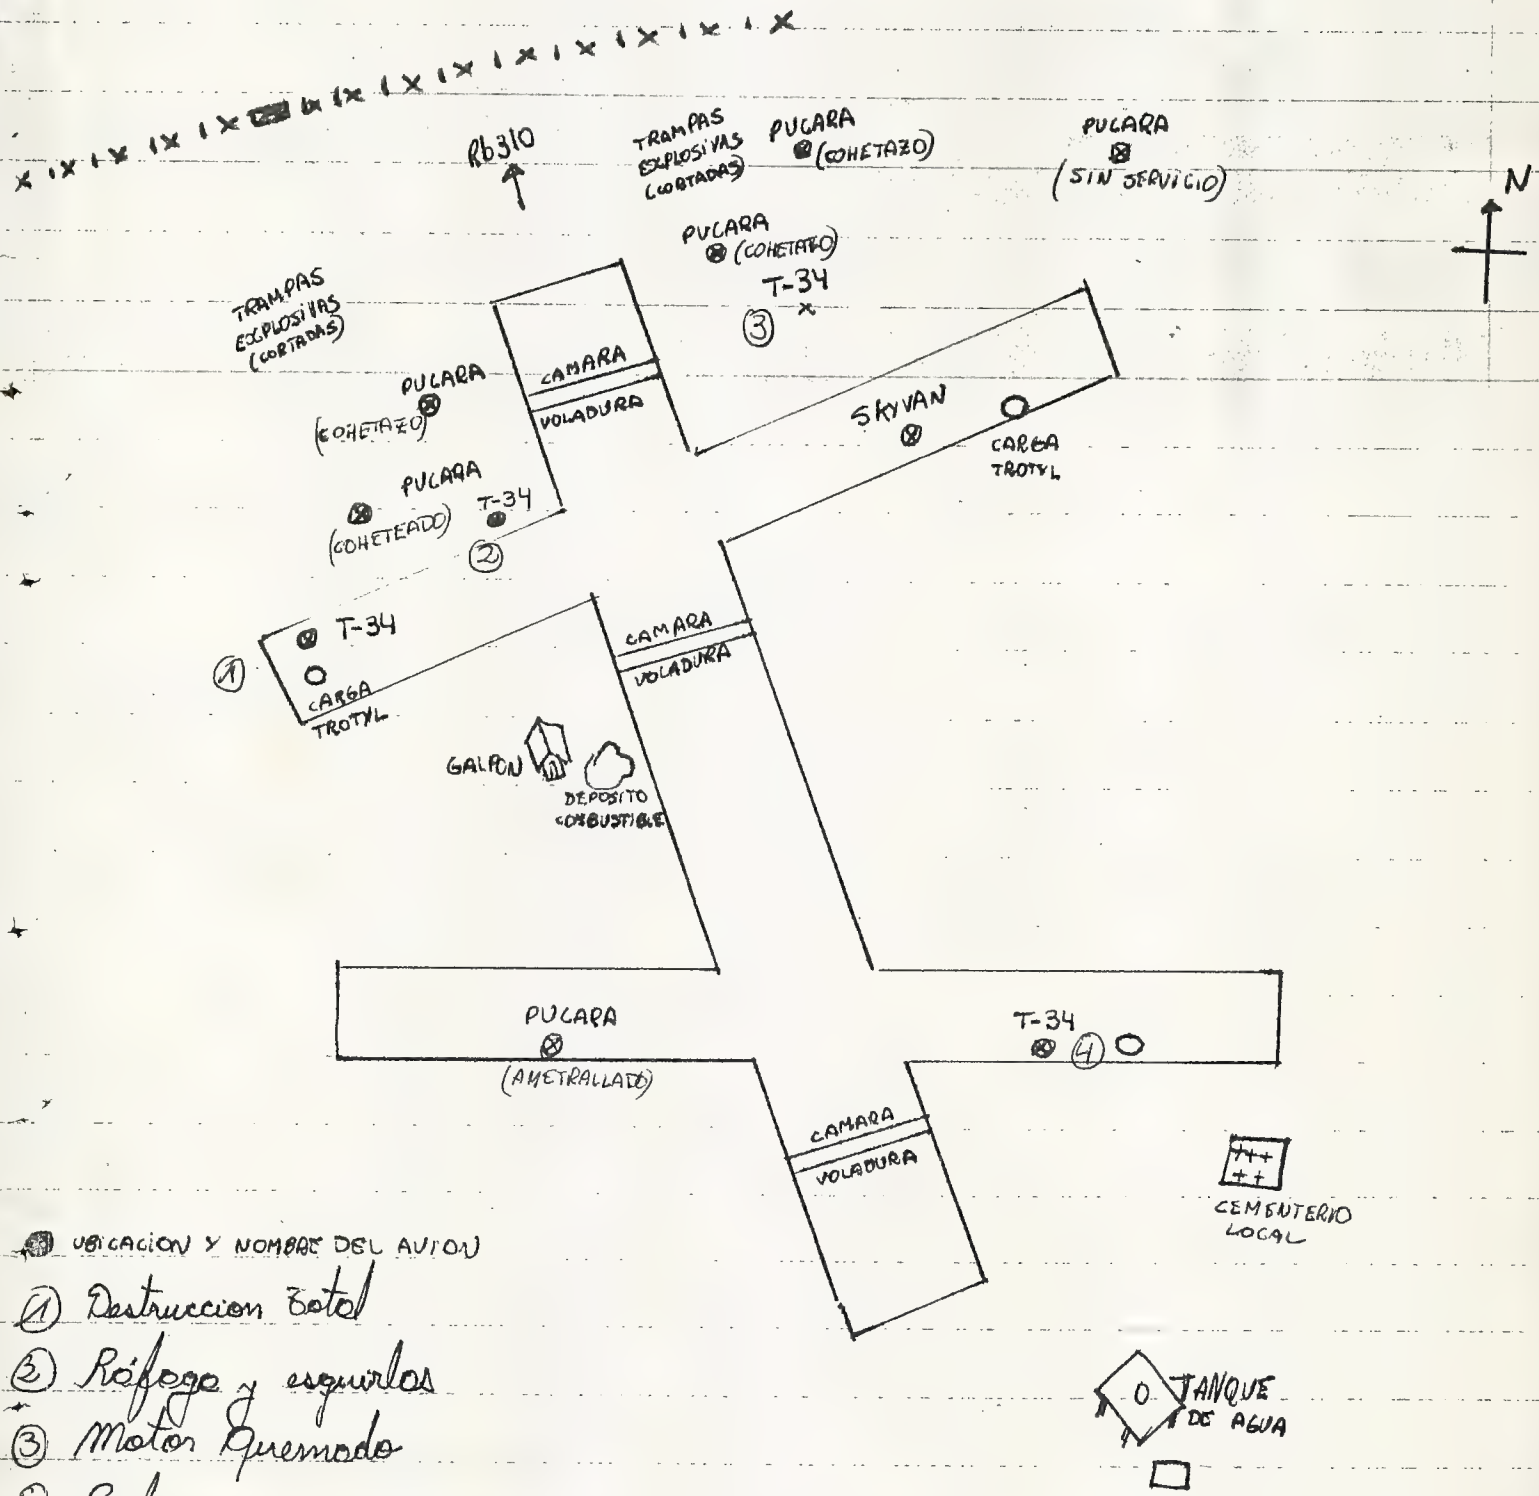 Rb310
TRAMPAS
EXPLOSIVAS
(CORTADAS)
PUCARA
(COHETAZO)
PUCARA
(SIN SERVICIO)
N
PUCARA
(COHETAZO)
T-34
3
TRAMPAS
EXPLOSIVAS
(CORTADAS)
PUCARA
(COHETAZO)
CAMARA
VOLADURA
SKYVAN
CARGA
TROTYL
PUCARA
(COHETEADO)
T-34
2
T-34
1
CARGA
TROTYL
CAMARA
VOLADURA
GALPON
DEPOSITO
COMBUSTIBLE
PUCARA
(AMETRALLADO)
T-34
4
CAMARA
VOLADURA
CEMENTERIO
LOCAL
UBICACION Y NOMBRE DEL AVION
1 Destruccion Total
2 Ráfaga y esquirlas
3 Motor Quemado
TANQUE
DE AGUA